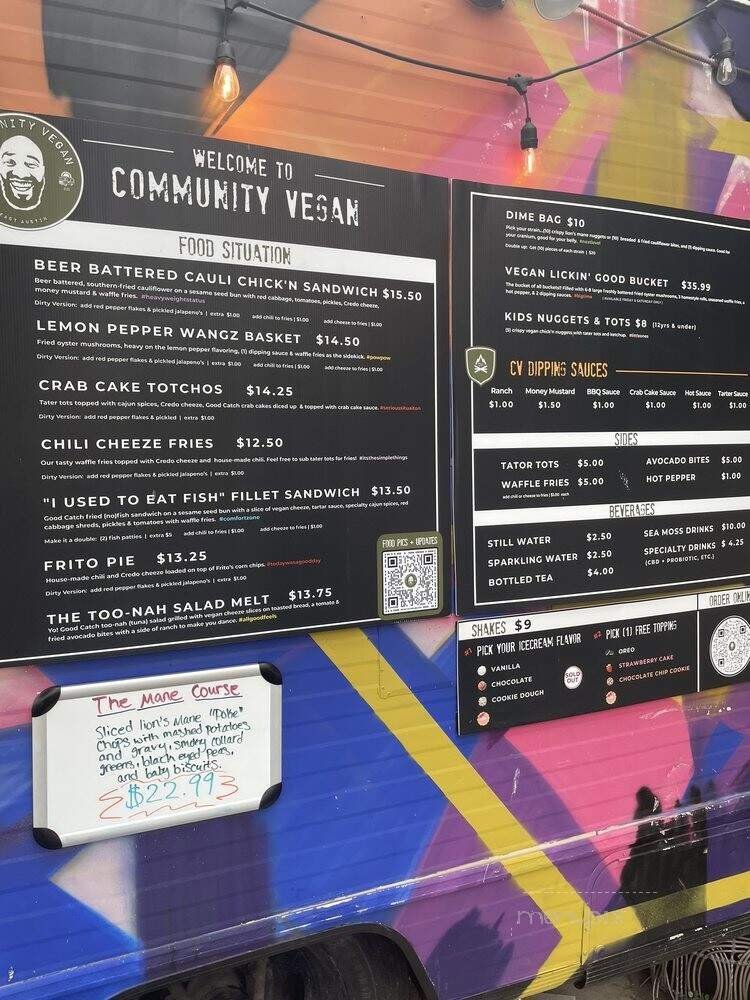 NITY VEGAN
EAST AUSTIN
WELCOME TO
COMMUNITY VEGAN
FOOD SITUATION
BEER BATTERED CAULI CHICK'N SANDWICH $15.50
Beer battered, southern-fried cauliflower on a sesame seed bun with red cabbage, tomatoes, pickles, Credo cheeze,
money mustard & waffle fries. #heavyweightstatus
Dirty Version: add red pepper flakes & pickled jalapeno's | extra $1.00 add chili to fries | $1.00 add cheeze to fries | $1.00
LEMON PEPPER WANGZ BASKET $14.50
Fried oyster mushrooms, heavy on the lemon pepper flavoring, (1) dipping sauce & waffle fries as the sidekick. #powpow
Dirty Version: add red pepper flakes & pickled jalapeno's | extra $1.00 add chili to fries | $1.00 add cheeze to fries | $1.00
CRAB CAKE TOTCHOS $14.25
Tater tots topped with cajun spices, Credo cheeze, Good Catch crab cakes diced up & topped with crab cake sauce. #serioussituaiton
Dirty Version: add red pepper flakes & pickled | extra $1.00
CHILI CHEEZE FRIES $12.50
Our tasty waffle fries topped with Credo cheeze and house-made chili. Feel free to sub tater tots for fries! #itsthesimplethings
Dirty Version: add red pepper flakes & pickled jalapeno's | extra $1.00
"I USED TO EAT FISH" FILLET SANDWICH $13.50
Good Catch fried (no)fish sandwich on a sesame seed bun with a slice of vegan cheeze, tartar sauce, specialty cajun spices, red
cabbage shreds, pickles & tomatoes with waffle fries. #comfortzone
Make it a double: (2) fish patties | extra $5 add chili to fries | $1.00 add cheeze to fries | $1.00
FRITO PIE $13.25
House-made chili and Credo cheeze loaded on top of Frito's corn chips. #todaywasagoodday
Dirty Version: add red pepper flakes & pickled jalapeno's | extra $1.00
THE TOO-NAH SALAD MELT $13.75
Yo! Good Catch too-nah (tuna) salad grilled with vegan cheeze slices on toasted bread, a tomato &
fried avocado bites with a side of ranch to make you dance. #allgoodfeels
FOOD PICS + UPDATES
DIME BAG $10
Pick your strain..(10) crispy lion's mane nuggets or (10) breaded & fried cauliflower bites, and (1) dipping sauce. Good for
your cranium, good for your belly. #nextlevel
Double up: Get (10) pieces of each strain | $20
VEGAN LICKIN' GOOD BUCKET $35.99
The bucket of all buckets! Filled with 6-8 large freshly battered fried oyster mushrooms, 3 homestyle rolls, seasoned waffle fries, a
hot pepper, & 2 dipping sauces. #bigtime (AVAILABLE FRIDAY & SATURDAY ONLY)
KIDS NUGGETS & TOTS $8 (12yrs & under)
(5) crispy vegan chick'n nuggets with tater tots and ketchup. #littleones
CV DIPPING SAUCES
Ranch Money Mustard BBQ Sauce Crab Cake Sauce Hot Sauce Tarter Sauce
$1.00 $1.50 $1.00 $1.00 $1.00 $1.00
SIDES
TATOR TOTS $5.00 AVOCADO BITES $5.00
WAFFLE FRIES $5.00 HOT PEPPER $1.00
add chili or cheeze to fries | $1.00 each
BEVERAGES
STILL WATER $2.50 SEA MOSS DRINKS $10.00
SPARKLING WATER $2.50 SPECIALTY DRINKS $4.25
(CBD + PROBIOTIC, ETC.)
BOTTLED TEA $4.00
SHAKES $9
#1 PICK YOUR ICECREAM FLAVOR
VANILLA
CHOCOLATE
COOKIE DOUGH
SOLD
OUT
#2 PICK (1) FREE TOPPING
OREO
STRAWBERRY CAKE
CHOCOLATE CHIP COOKIE
ORDER ONLIN
The Mane Course
Sliced lion's Mane "Poke"
Chops with mashed potatoes
and gravy, smokey collard
greens, black eyed peas,
and baby biscuits.
$22.99